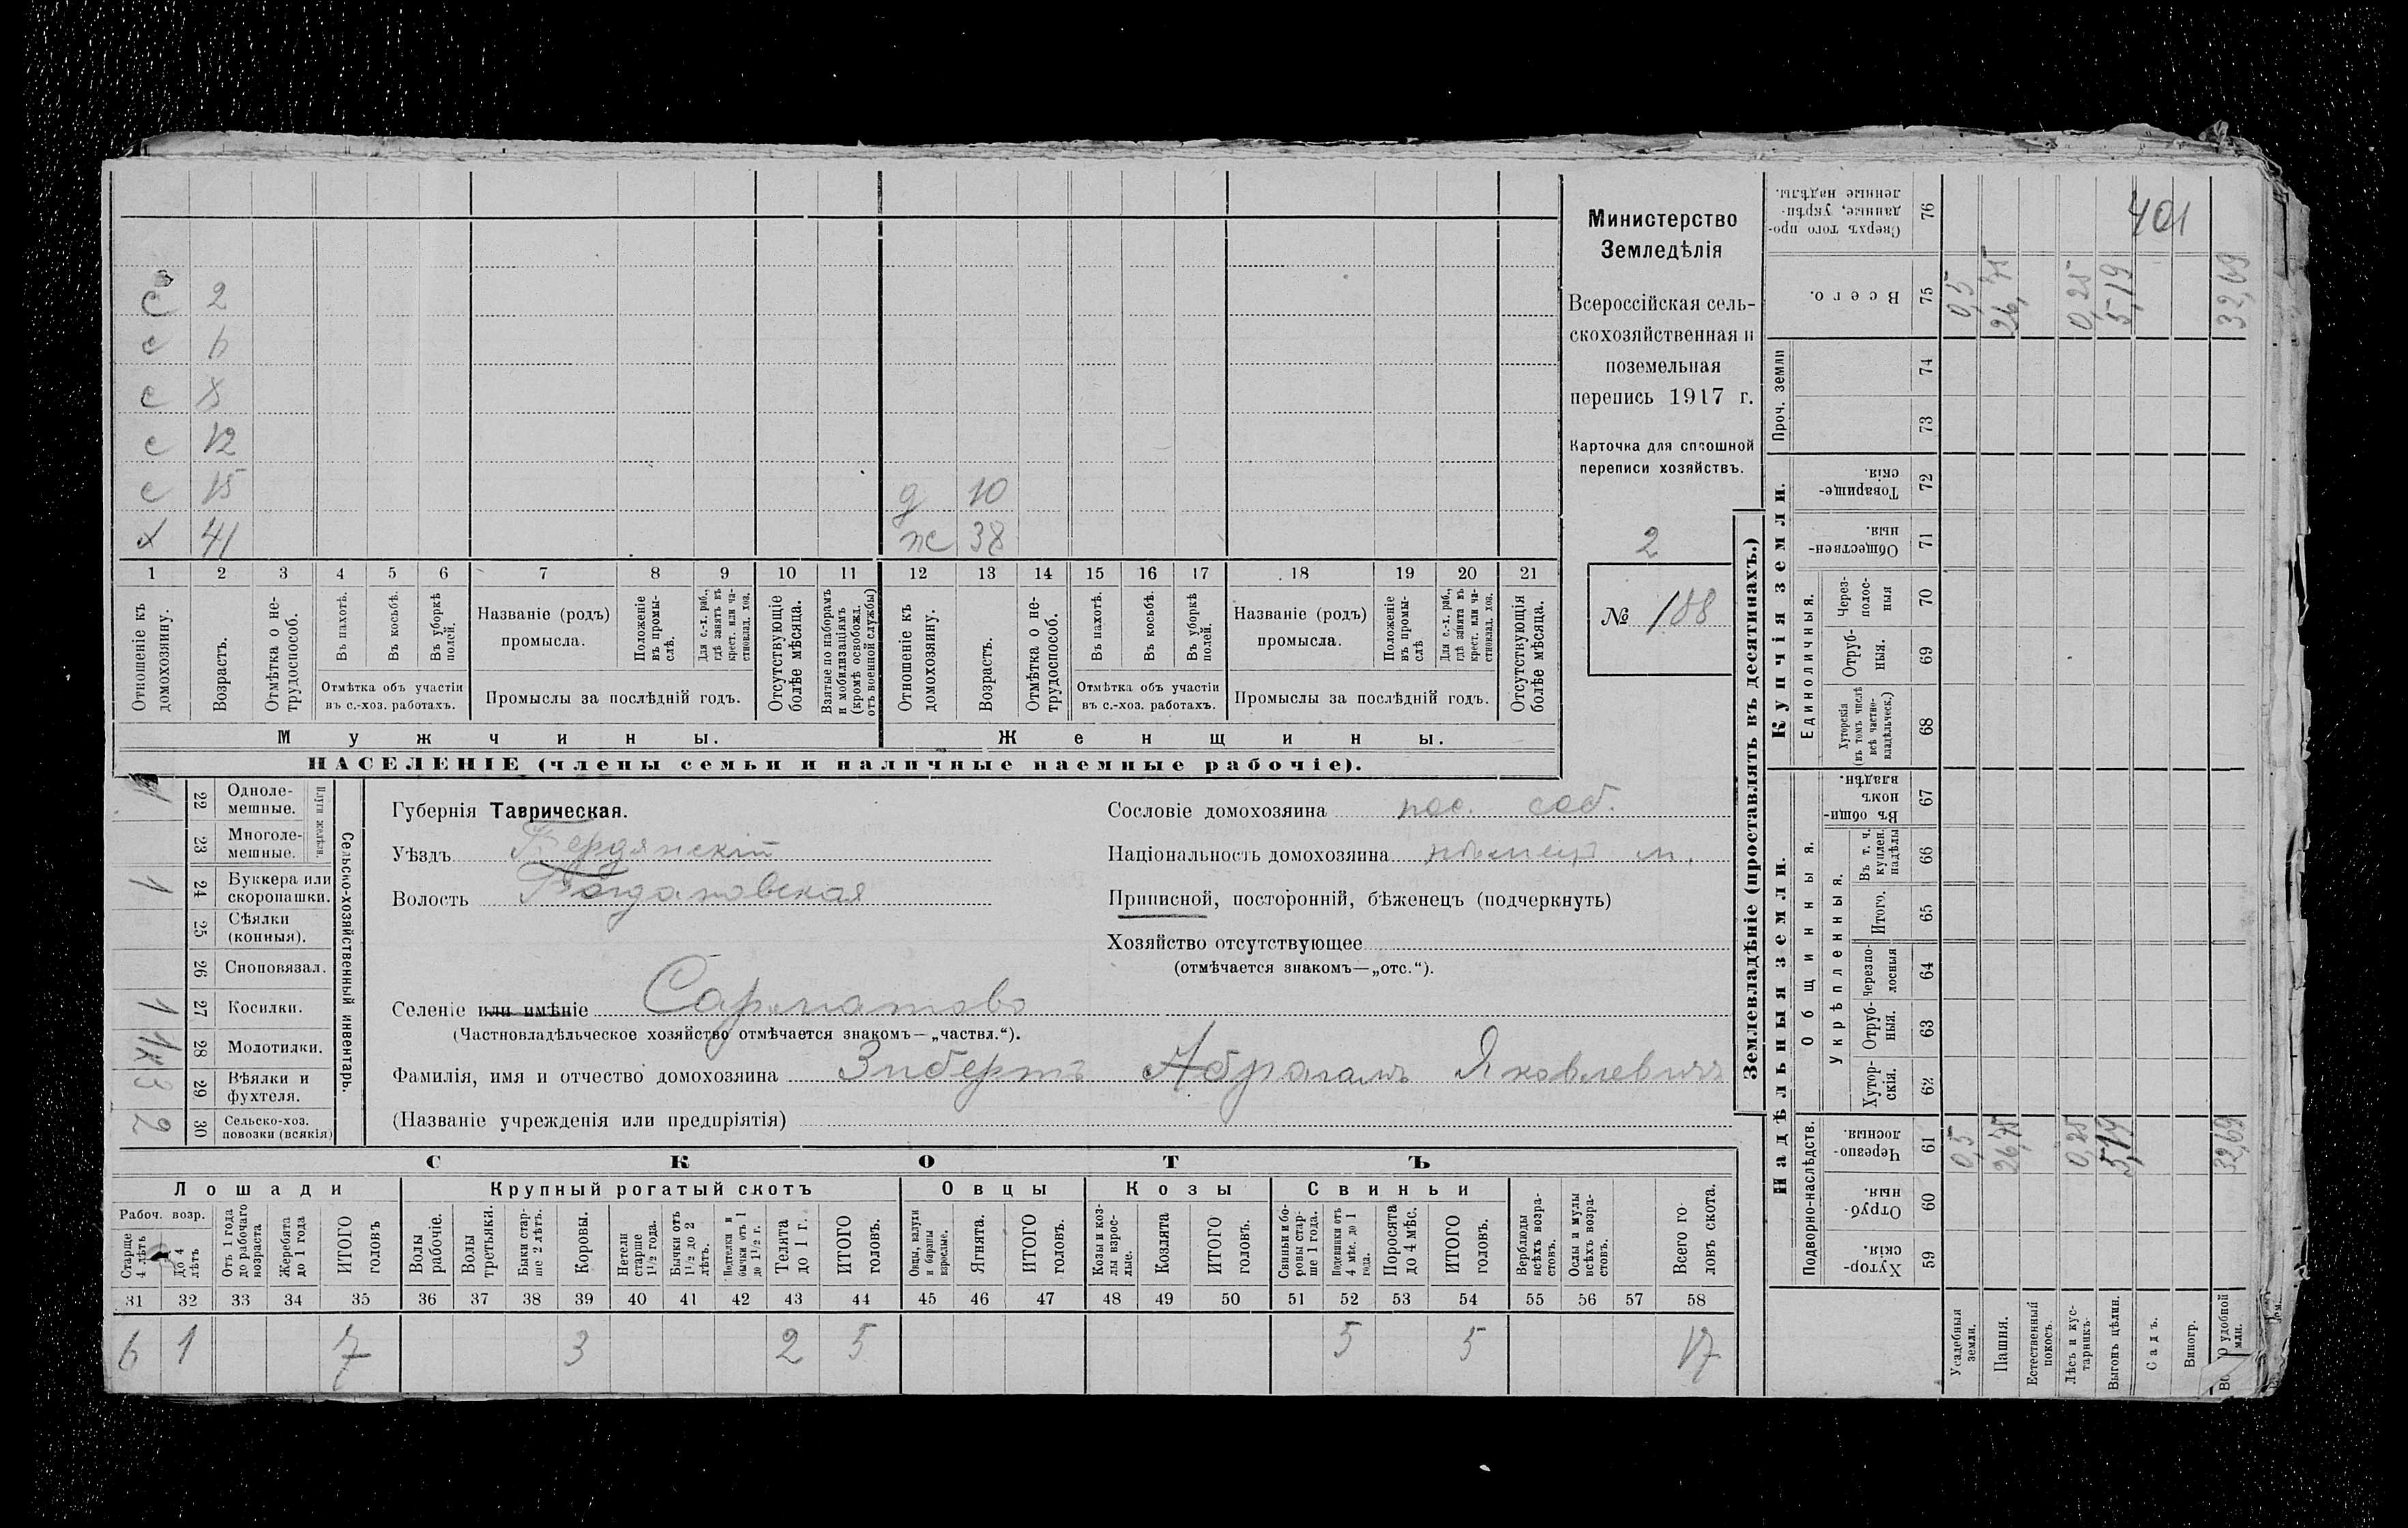 401
Министерство
Земледѣлія
Всероссійская сель-
скохозяйственная и
поземельная
перепись 1917 г.
Карточка для сплошной
переписи хозяйствъ.
2
№ 188
с 2
с 6
с 8
с 12
с 15 д 10
х 41 ж 38
1 2 3 4 5 6 7 8 9 10 11 12 13 14 15 16 17 18 19 20 21
Отношеніе къ домохозяину.
Возрастъ.
Отмѣтка о не-трудоспособ.
Въ пахотѣ.
Въ косьбѣ.
Въ уборкѣ полей.
Отмѣтка объ участіи
въ с.-хоз. работахъ.
Названіе (родъ)
промысла.
Положеніе въ промы-слѣ.
Для с.-х. раб., гдѣ занятъ въ крест. или ча-стновлад. хоз.
Промыслы за послѣдній годъ.
Отсутствующіе болѣе мѣсяца.
Взятые по наборамъ и мобилизаціямъ (кромѣ освобожд. отъ военной службы)
Отношеніе къ домохозяину.
Возрастъ.
Отмѣтка о не-трудоспособ.
Въ пахотѣ.
Въ косьбѣ.
Въ уборкѣ полей.
Отмѣтка объ участіи
въ с.-хоз. работахъ.
Названіе (родъ)
промысла.
Положеніе въ промы-слѣ
Для с.-х. раб., гдѣ занята въ крест. или ча-стновлад. хоз.
Промыслы за послѣдній годъ.
Отсутствующія болѣе мѣсяца.
Мужчины. Женщины.
НАСЕЛЕНІЕ (члены семьи и наличные наемные рабочіе).
Сельско-хозяйственный инвентарь.
Плуги желѣзн.
1 22 Одноле-мешные.
23 Многоле-мешные.
1 24 Буккера или скоропашки.
25 Сѣялки (конныя).
26 Сноповязал.
1 27 Косилки.
1к 28 Молотилки.
3 29 Вѣялки и фухтеля.
2 30 Сельско-хоз. повозки (всякія)
Губернія Таврическая.
Уѣздъ Бердянскій
Волость Богдановская
Сословіе домохозяина пос. соб.
Національность домохозяина нѣмецъ м.
Приписной, посторонній, бѣженецъ (подчеркнуть)
Хозяйство отсутствующее
(отмѣчается знакомъ—„отс.“).
Селеніе или имѣніе
(Частновладѣльческое хозяйство отмѣчается знакомъ—„частвл.“).
Фамилія, имя и отчество домохозяина Зибертъ Абрагамъ Яковлевичъ
(Названіе учрежденія или предпріятія)
СКОТЪ
Лошади Крупный рогатый скотъ Овцы Козы Свиньи
Рабоч. возр.
Старше 4 лѣтъ
До 4 лѣтъ
Отъ 1 года до рабочаго возраста
Жеребята до 1 года
ИТОГО головъ
Волы рабочіе.
Волы третьяки.
Быки стар-ше 2 лѣтъ.
Коровы.
Нетели старше 1½ года.
Бычки отъ 1½ до 2 лѣтъ.
Подтелки и бычки отъ 1 до 1½ г.
Телята до 1 г.
ИТОГО головъ.
Овцы, валухи и бараны взрослые.
Ягнята.
ИТОГО головъ.
Козы и коз-лы взрос-лые.
Козлята
ИТОГО головъ.
Свиньи и бо-ровы стар-ше 1 года.
Подсвинки отъ 4 мѣс. до 1 года.
Поросята до 4 мѣс.
ИТОГО головъ.
Верблюды всѣхъ возра-стовъ.
Ослы и мулы всѣхъ возра-стовъ.
Всего го-ловъ скота.
31 32 33 34 35 36 37 38 39 40 41 42 43 44 45 46 47 48 49 50 51 52 53 54 55 56 57 58
6 1 7 3 2 5 5 5 17
Землевладѣніе (проставлять въ десятинахъ.)
Надѣльныя земли. Купчія земли. Проч. земли
Подворно-наслѣдств.
Общинныя.
Укрѣпленныя.
Единоличныя.
Хутор-скія. 59
Отруб-ныя. 60
Черезпо-лосныя. 61
Хутор-скія. 62
Отруб-ныя. 63
Черезпо-лосныя 64
Итого. 65
Въ т. ч. куплен. надѣлы 66
Въ общин-номъ владѣн. 67
Хуторскія (въ томъ числѣ всѣ частно-владѣльческ.) 68
Отруб-ныя. 69
Через-полос-ныя 70
Обществен-ныя. 71
Товарище-скія. 72
73
74
Всего. 75
Сверхъ того про-данные, укрѣп-ленные надѣлы. 76
Усадебныя земли. 0,5 0,5
Пашня. 26,75 26,75
Естественный покосъ.
Лѣсъ и кус-тарникъ. 0,25 0,25
Выгонъ цѣлин. 5,19 5,19
Садъ.
Виногр.
удобной 32,69 32,69